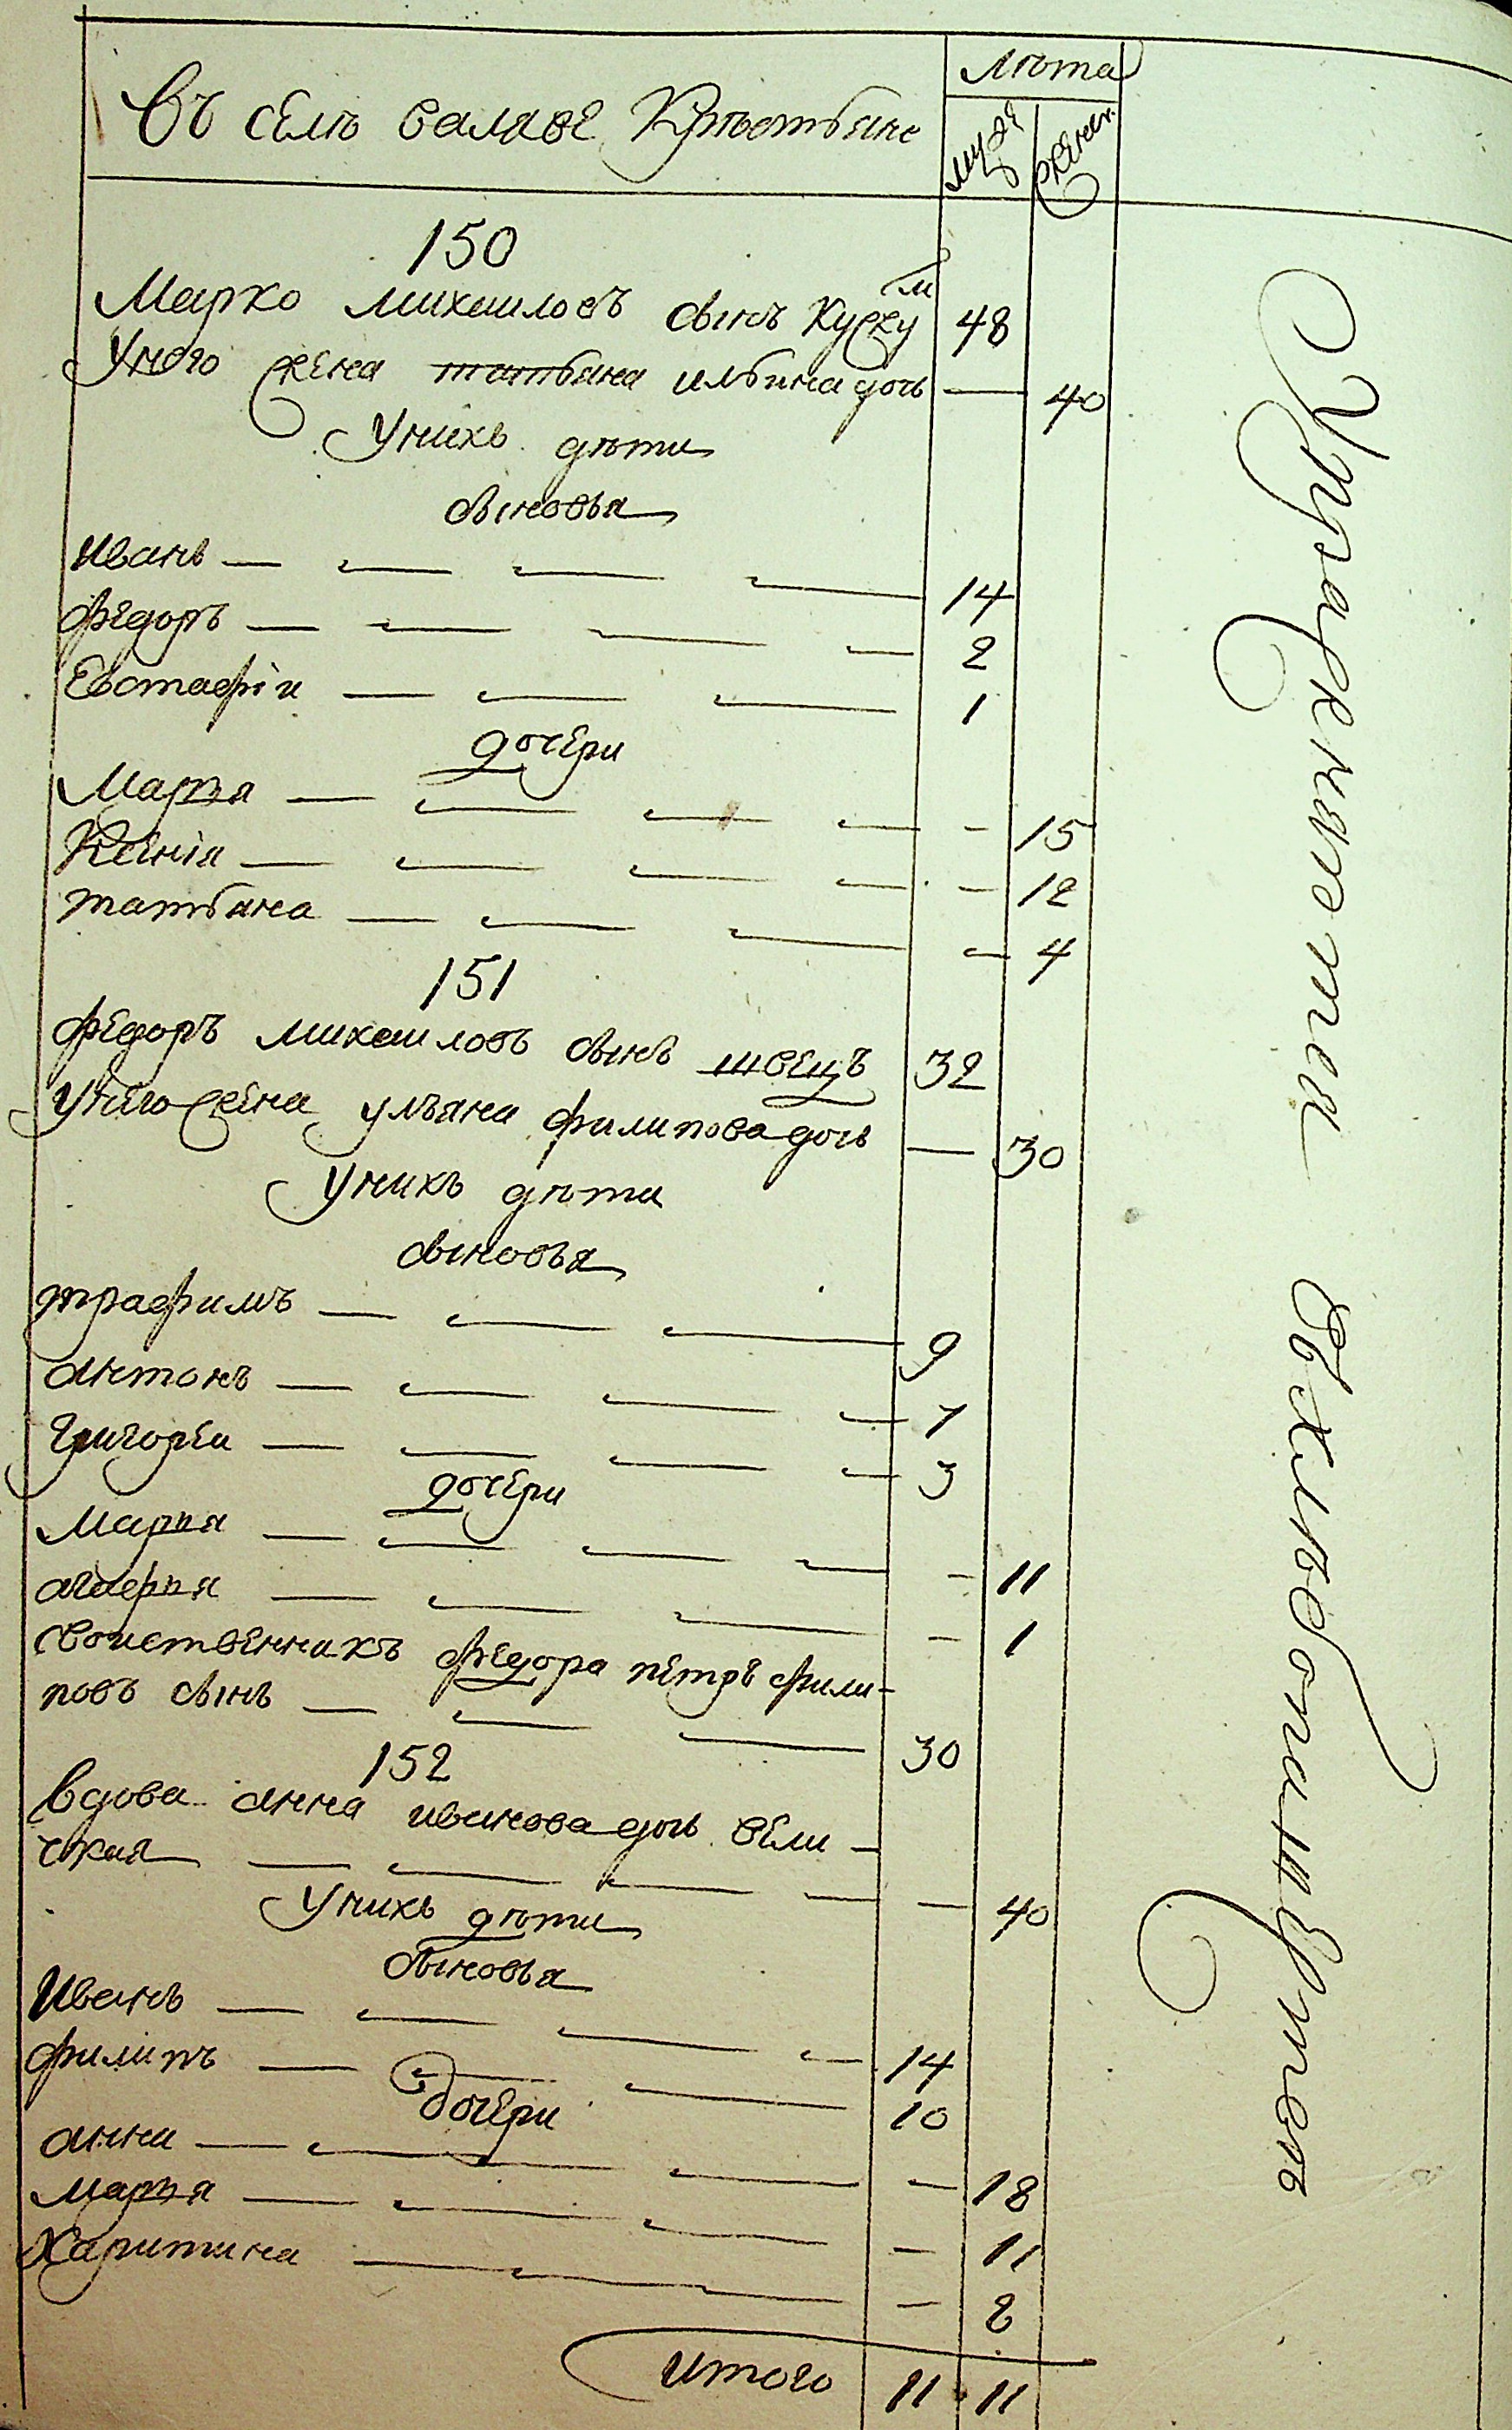 Въ селѣ Салаве Крѣстьяне
лѣта
муже
женъ
150
Марко михаиловъ сынъ Куркум 48
Унего жена татьяна ильина дочь — 40
Унихъ дѣти
сыновья
иванъ — 14
федоръ — 2
Евстафiи — 1
дочери
Марья — 15
Ксенiя — 12
татьяна — 4
151
федоръ михаиловъ сынъ швецъ 32
Унего жена ульяна филипова дочь — 30
Унихъ дѣти
сыновья
трафимъ — 9
антонъ — 7
григореи — 3
дочери
Марья — 11
агафья — 1
свойственникъ федора петръ фили-
повъ сынъ — 30
152
Вдова анна иванова дочь вели-
чкая — 40
Унихъ дѣти
сыновья
Иванъ — 14
филипъ — 10
дочери
анна — 18
марья — 11
Харитина — 8
итого 11 11